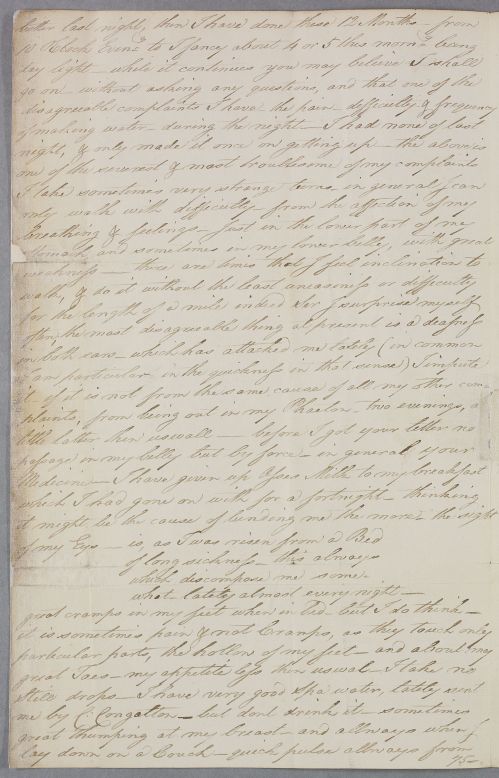 better last night, then I have done these 12 Months - from
10 oClock Even.g to I fancy about 4 or 5 this morn.g being
day light - while it continues you may believe I shall
go on - without asking any questions, and that one of the
disagreeable complaints I have the pain - difficulty & frequency
of making water - during the night - I had none of last
night, & only made it once on getting up - the above is
one of the severest & most troublesome of my complaints
I take sometimes very strange turns, in general I can
only walk with difficulty from the affection of my
Breathing & feelings - just in the lower part of me
Stomach, and sometimes in my lower belly, with great
weakness - there are times that I feel inclination to
walk, & do it without the least uneasiness or difficulty
for the length of a mile indeed Sir I surprise myself
often the most disagreeable thing at present is a deafness
in both ears - which has attacked me lately (in common
I am particular in the quickness in that sense) I impute
it if it is not from the same cause of all my other com
plaints, from being out in my Phaeton - two evenings, a
little latter then uswall - before I got your letter no
passage in my belly but by force - in general your
Medicine - I have given up Asses Milk to my breakfast
which I had gone on with for a fortnight - thinking
it might be the cause of binding me the more - the sight
of my Eyes - is, as I was risen from a Bed
of long sickness - this always
which discompose me some-
what lately almost every night -
great cramps in my feet when in Bed - but I do think -
it is sometimes pain & not Cramps, as they touch only
particular parts, the hollow of my feet - and about my
great Toes - my appetite less then uswal - I take no
Steel drops - I have very good Spa water, lately sent
me by C. Congalton - but dont drink it - sometimes
great thumping at my breast - and allways when I
lay down on a Couch - quick pulse allways from
75-